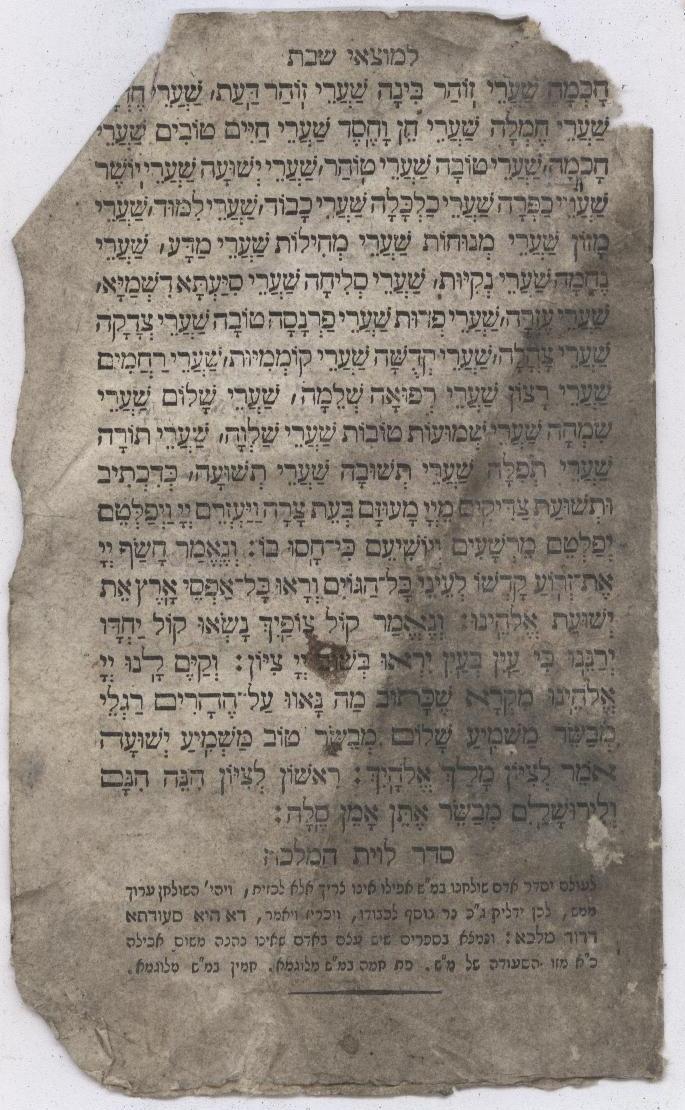 למוצאי שבת
חָכְמָה שַׁעֲרֵי זוֹהַר בִּינָה שַׁעֲרֵי זוֹהַר דַּעַת, שַׁעֲרֵי
שַׁעֲרֵי חֶמְלָה שַׁעֲרֵי חֵן וָחֶסֶד שַׁעֲרֵי חַיִּים טוֹבִים שַׁעֲרֵי
חָכְמָה, שַׁעֲרֵי טוֹבָה שַׁעֲרֵי טוֹהַר, שַׁעֲרֵי יְשׁוּעָה שַׁעֲרֵי יוֹשֶׁר
שַׁעֲרֵי כַפָּרָה שַׁעֲרֵי כַלְכָּלָה שַׁעֲרֵי כָבוֹד, שַׁעֲרֵי לִמּוּד, שַׁעֲרֵי
מָזוֹן שַׁעֲרֵי מְנוּחוֹת שַׁעֲרֵי מְחִילוֹת שַׁעֲרֵי מַדָּע, שַׁעֲרֵי
נֶחָמָה שַׁעֲרֵי נְקִיּוּת, שַׁעֲרֵי סְלִיחָה שַׁעֲרֵי סִיַּעְתָּא דִשְׁמַיָּא,
שַׁעֲרֵי עֶזְרָה, שַׁעֲרֵי פְּדוּת שַׁעֲרֵי פַּרְנָסָה טוֹבָה שַׁעֲרֵי צְדָקָה
שַׁעֲרֵי צָהֳלָה, שַׁעֲרֵי קְדֻשָּׁה שַׁעֲרֵי קוֹמְמִיּוּת, שַׁעֲרֵי רַחֲמִים
שַׁעֲרֵי רָצוֹן שַׁעֲרֵי רְפוּאָה שְׁלֵמָה, שַׁעֲרֵי שָׁלוֹם שַׁעֲרֵי
שִׂמְחָה שַׁעֲרֵי שְׁמוּעוֹת טוֹבוֹת שַׁעֲרֵי שַׁלְוָה, שַׁעֲרֵי תוֹרָה
שַׁעֲרֵי תְפִלָּה שַׁעֲרֵי תְּשׁוּבָה שַׁעֲרֵי תְשׁוּעָה, כְּדִכְתִיב
וּתְשׁוּעַת צַדִּיקִים מֵיְיָ מָעוּזָּם בְּעֵת צָרָה וַיַּעְזְרֵם יְיָ וַיְפַלְּטֵם
יְפַלְּטֵם מֵרְשָׁעִים וְיוֹשִׁיעֵם כִּי־חָסוּ בוֹ: וְנֶאֱמַר חָשַׂף יְיָ
אֶת־זְרוֹעַ קָדְשׁוֹ לְעֵינֵי כָּל־הַגּוֹיִם וְרָאוּ כָּל־אַפְסֵי אָרֶץ אֵת
יְשׁוּעַת אֱלֹהֵינוּ: וְנֶאֱמַר קוֹל צוֹפַיִךְ נָשְׂאוּ קוֹל יַחְדָּו
יְרַנֵּנוּ כִּי עַיִן בְּעַיִן יִרְאוּ בְּשׁוּב יְיָ צִיּוֹן: וְקַיֵּם לָנוּ יְיָ
אֱלֹהֵינוּ מִקְרָא שֶׁכָּתוּב מַה נָּאווּ עַל־הֶהָרִים רַגְלֵי
מְבַשֵּׂר מַשְׁמִיעַ שָׁלוֹם מְבַשֵּׂר טוֹב מַשְׁמִיעַ יְשׁוּעָה
אֹמֵר לְצִיּוֹן מָלַךְ אֱלֹהָיִךְ: רִאשׁוֹן לְצִיּוֹן הִנֵּה הִנָּם
וְלִירוּשָׁלַיִם מְבַשֵּׂר אֶתֵּן אָמֵן סֶלָה:
סדר לוית המלכה
לעולם יסדר אדם שולחנו במ"ש אפילו אינו צריך אלא לכזית, ויהי' השולחן ערוך
ממש, לכן ידליק ג"כ נר נוסף לכבודו, ויכריז ויאמר, דא היא סעודתא
דדוד מלכא: ונמצא בספרים שיש עצם באדם שאינו נהנה משום אכילה
כ"א מזו הסעודה של מ"ש. פת חמה במ"ש מלוגמא. חמין במ"ש מלוגמא.